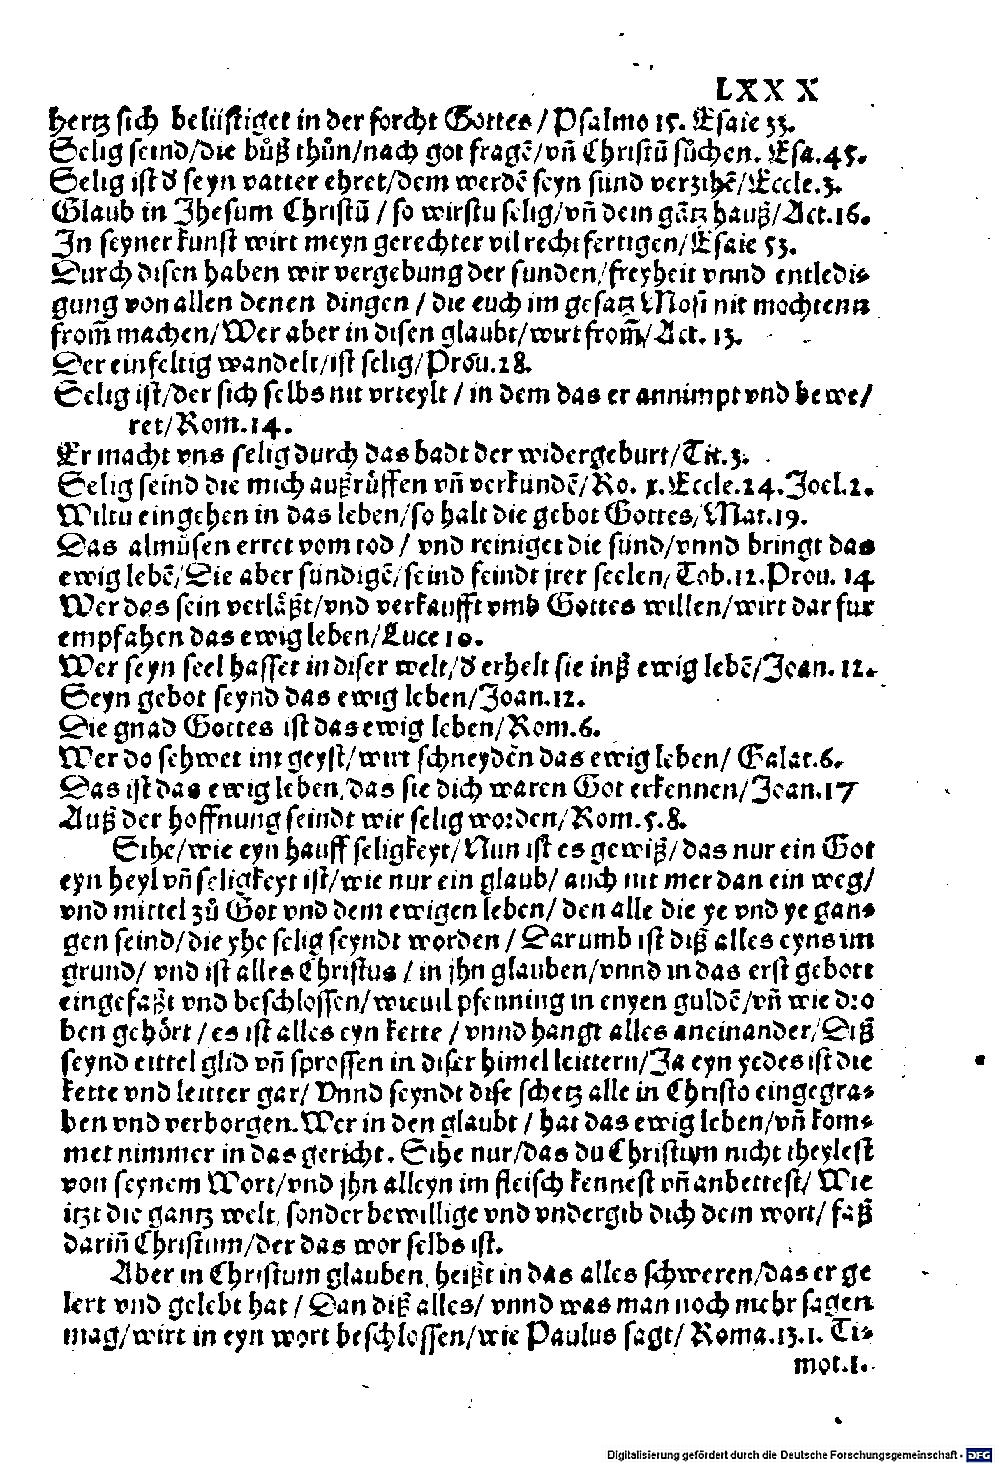 LXXX
hertz sich belüstiget in der forcht Gottes / Psalmo 15. Esaie 33.
Selig seind/die bůß thůn/nach got fragẽ/vñ Christũ sůchen. Esa.45.
Selig ist d̕ seyn vatter ehret/dem werdẽ seyn sund verzihẽ/Eccle.3.
Glaub in Jhesum Christũ / so wirstu selig/vñ dein gãtz hauß/Act.16.
In seyner kunst wirt meyn gerechter vil rechtfertigen/Esaie 53.
Durch disen haben wir vergebung der sunden/freyheit vnnd entledi⸗
gung von allen denen dingen / die euch im gesatz Mosi nit mochtenn
from̃ machen/Wer aber in disen glaubt/wirt from̃/Act. 13.
Der einfeltig wandelt/ist selig/Proũ.28.
Selig ist/der sich selbs nit vrteylt / in dem das er annimpt vnd bewe/
ret/Rom.14.
Er macht vns selig durch das badt der widergeburt/Tit.3.
Selig seind die mich außrůffen vñ verkundẽ/Ro. x.Eccle.24.Joel.2.
Wiltu eingehen in das leben/so halt die gebot Gottes/Mat.19.
Das almůsen erret vom tod / vnd reiniget die sund/vnnd bringt das
ewig lebẽ/Die aber sundigẽ/seind feindt jrer seelen/Tob.12.Prou. 14
Wer das sein verlåßt/vnd verkaufft vmb Gottes willen/wirt dar fur
empfahen das ewig leben/Luce 10.
Wer seyn seel hasset in diser welt/d̕ erhelt sie inß ewig lebẽ/Joan. 12.
Seyn gebot seynd das ewig leben/Joan.12.
Die gnad Gottes ist das ewig leben/Rom.6.
Wer do sehwet inn geyst/wirt schneydẽn das ewig leben/ Galat.6.
Das ist das ewig leben/das sie dich waren Got erkennen/Joan.17
Auß der hoffnung seindt wir selig worden/Rom.5.8.
Sihe/wie eyn hauff seligkeyt/Nun ist es gewiß/das nur ein Got
eyn heyl vñ seligkeyt ist/wie nur ein glaub/ auch nit mer dan ein weg/
vnd mittel zů Got vnd dem ewigen leben/ den alle die ye vnd ye gan⸗
gen seind/die yhe selig seyndt worden / Darumb ist diß alles eyns im
grund/ vnd ist alles Christus / in jhn glauben/vnnd in das erst gebott
eingefaßt vnd beschlossen/wieuil pfenning in enyen guldẽ/vñ wie dro
ben gehőrt / es ist alles eyn kette / vnnd hangt alles aneinander/Diß
seynd eittel glid vñ sprossen in diser himel leittern/Ja eyn yedes ist die
kette vnd leitter gar/ Vnnd seyndt dise schetz alle in Christo eingegra⸗
ben vnd verborgen.Wer in den glaubt / hat das ewig leben/vñ kom⸗
met nimmer in das gericht. Sihe nur/das du Christum nicht theylest
von seynem Wort/vnd jhn alleyn im fleisch kennest vñ anbettest/ Wie
itzt die gantz welt, sonder bewillige vnd vndergib dich dem wort/ faß
darin̄ Christum/der das wor selbs ist.
Aber in Christum glauben, heißt in das alles schweren/das er ge
lert vnd gelebt hat / Dan diß alles/ vnnd was man noch mehr sagen
mag/wirt in eyn wort beschlossen/wie Paulus sagt/ Roma.13.1. Ti⸗
mot.1.
Digitalisierung gefördert durch die Deutsche Forschungsgemeinschaft - DFG